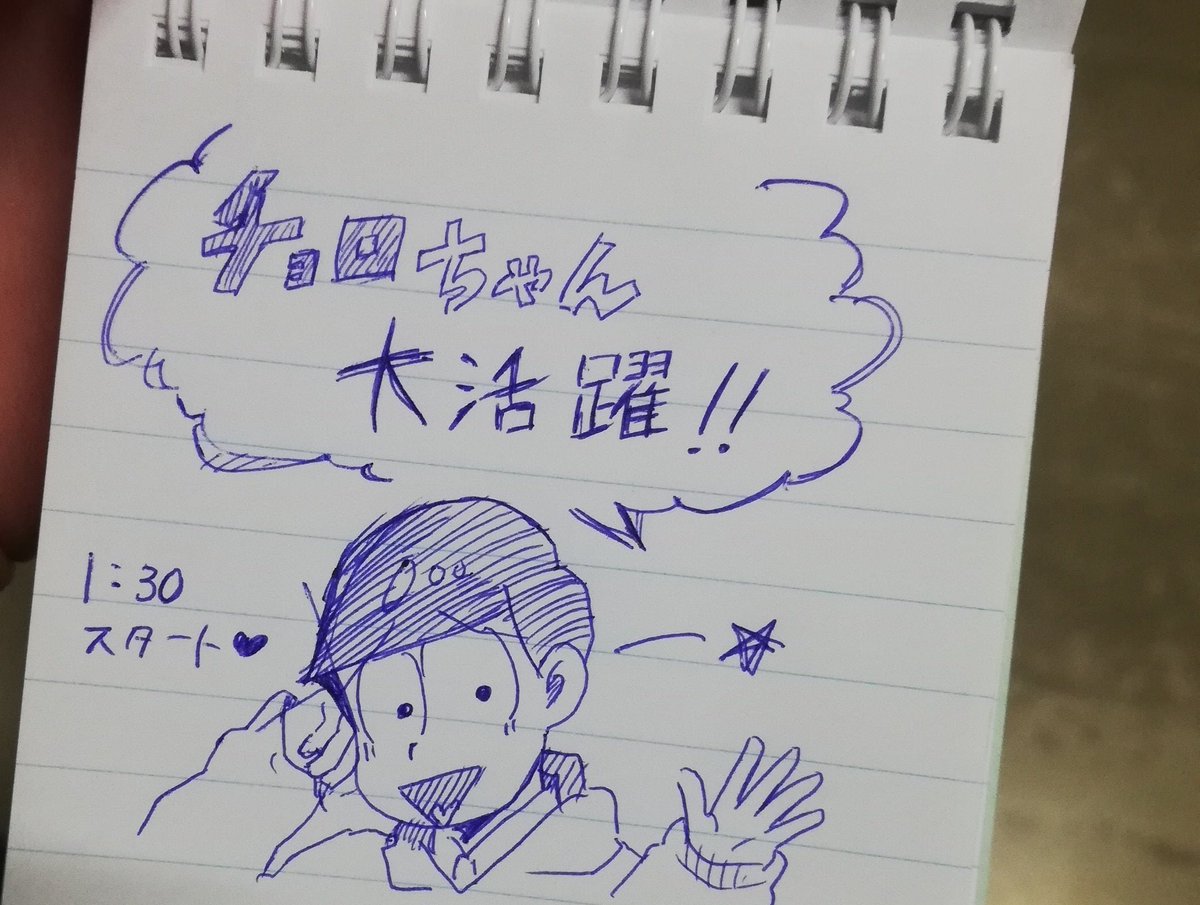 チョロちゃん
大活躍!!
1:30
スタート♥